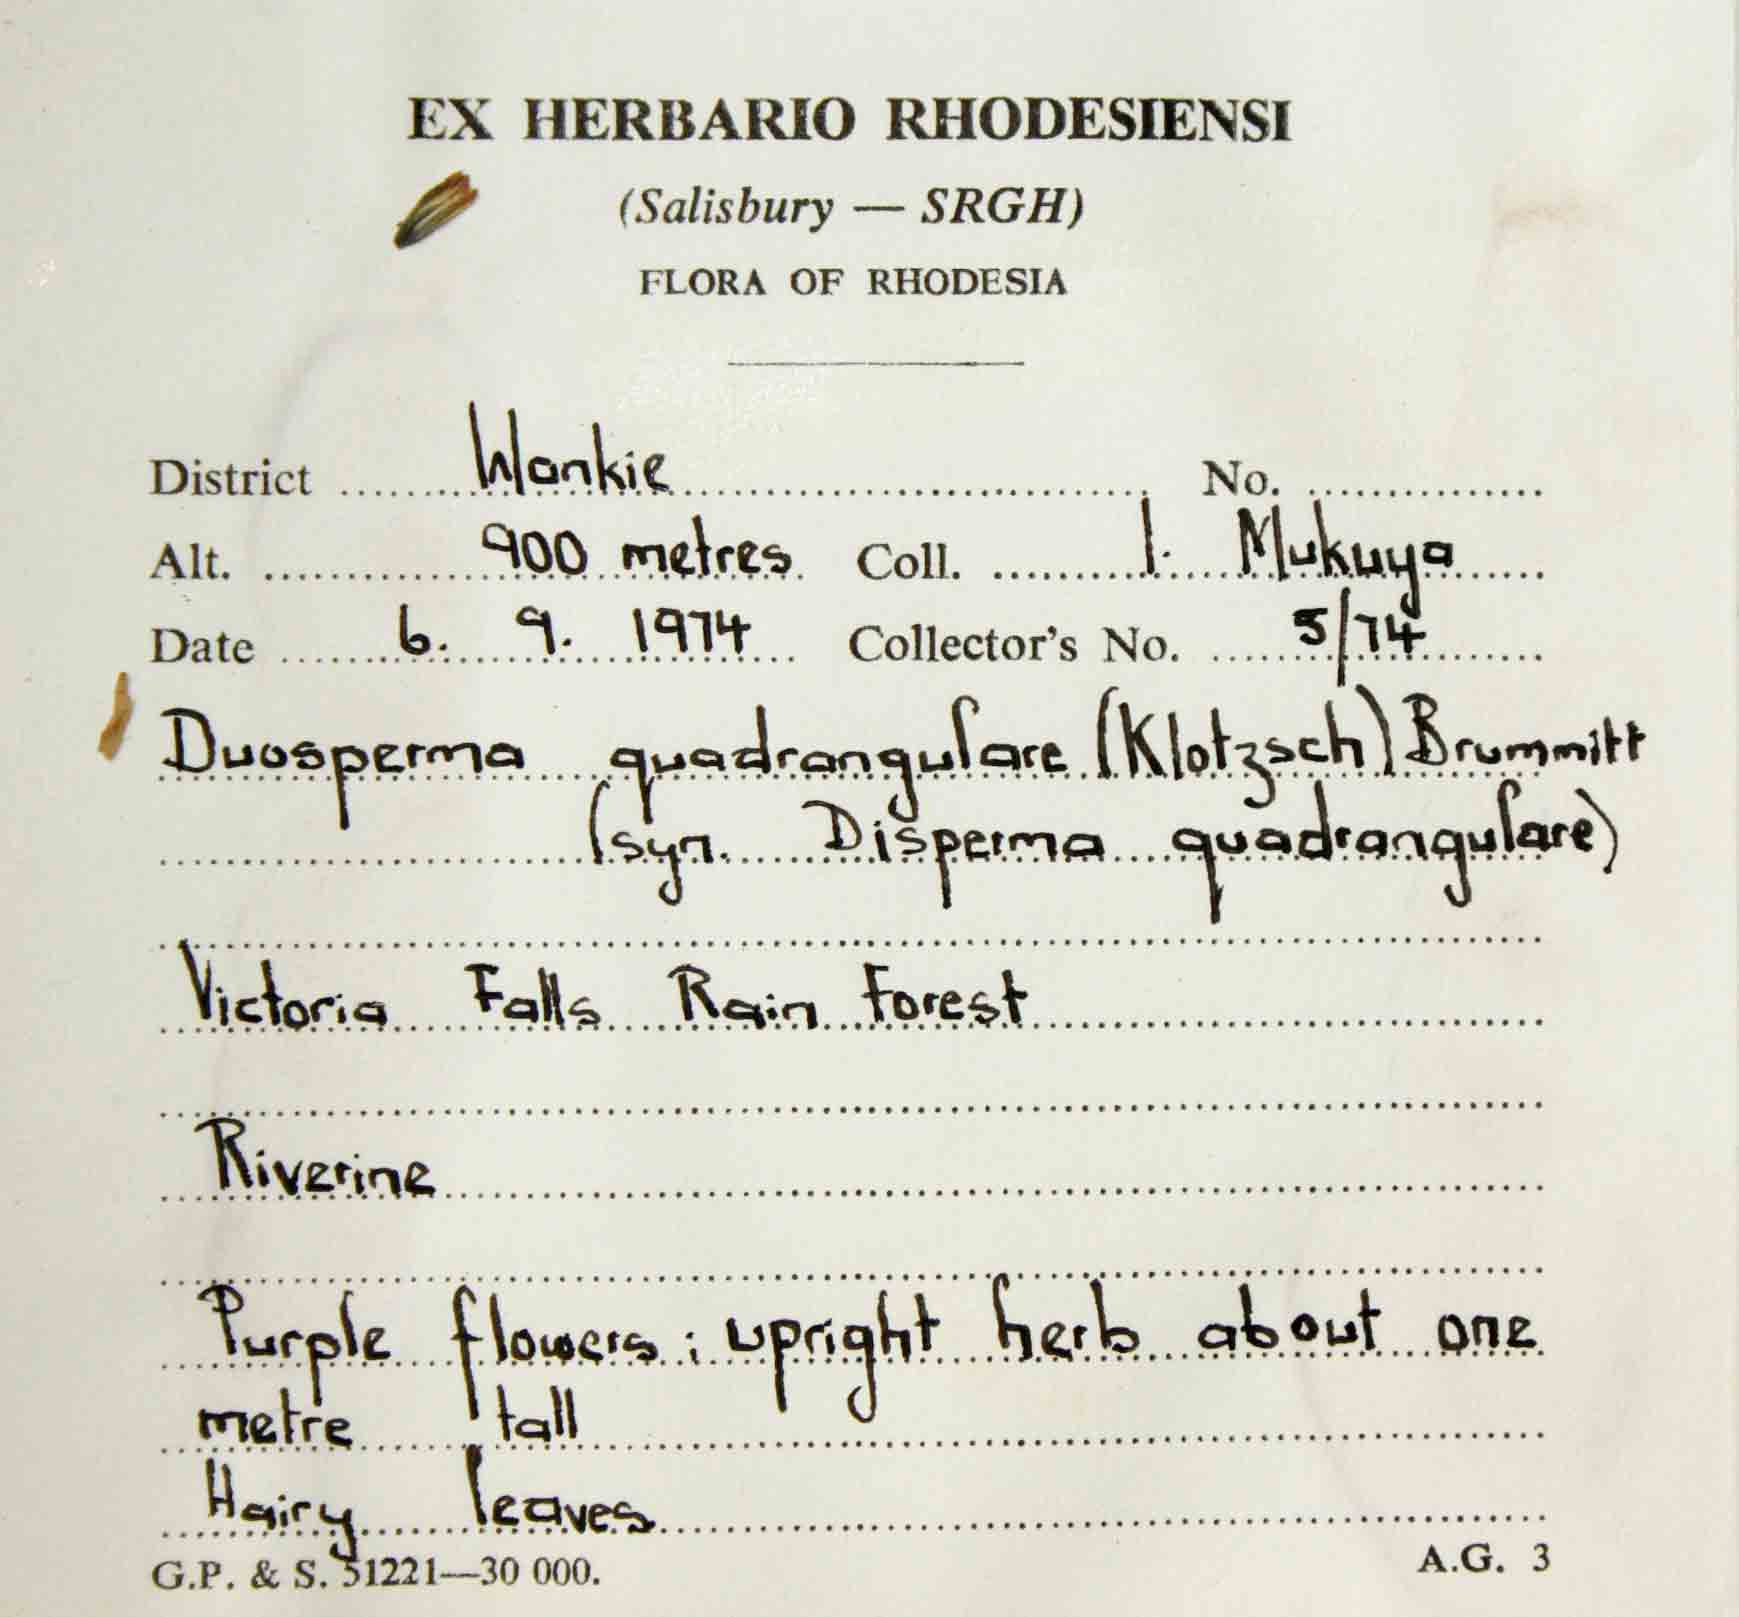 EX HERBARIO RHODESIENSI
(Salisbury — SRGH)
FLORA OF RHODESIA
District Wankie No.
Alt. 900 metres Coll. I. Mukuya
Date 6. 9. 1974 Collector's No. 5/74
Duosperma quadrangulare (Klotzsch) Brummitt
(syn. Disperma quadrangulare)
Victoria Falls Rain Forest
Riverine
Purple flowers; upright herb about one
metre tall
Hairy leaves
G.P. & S. 51221—30 000. A.G. 3